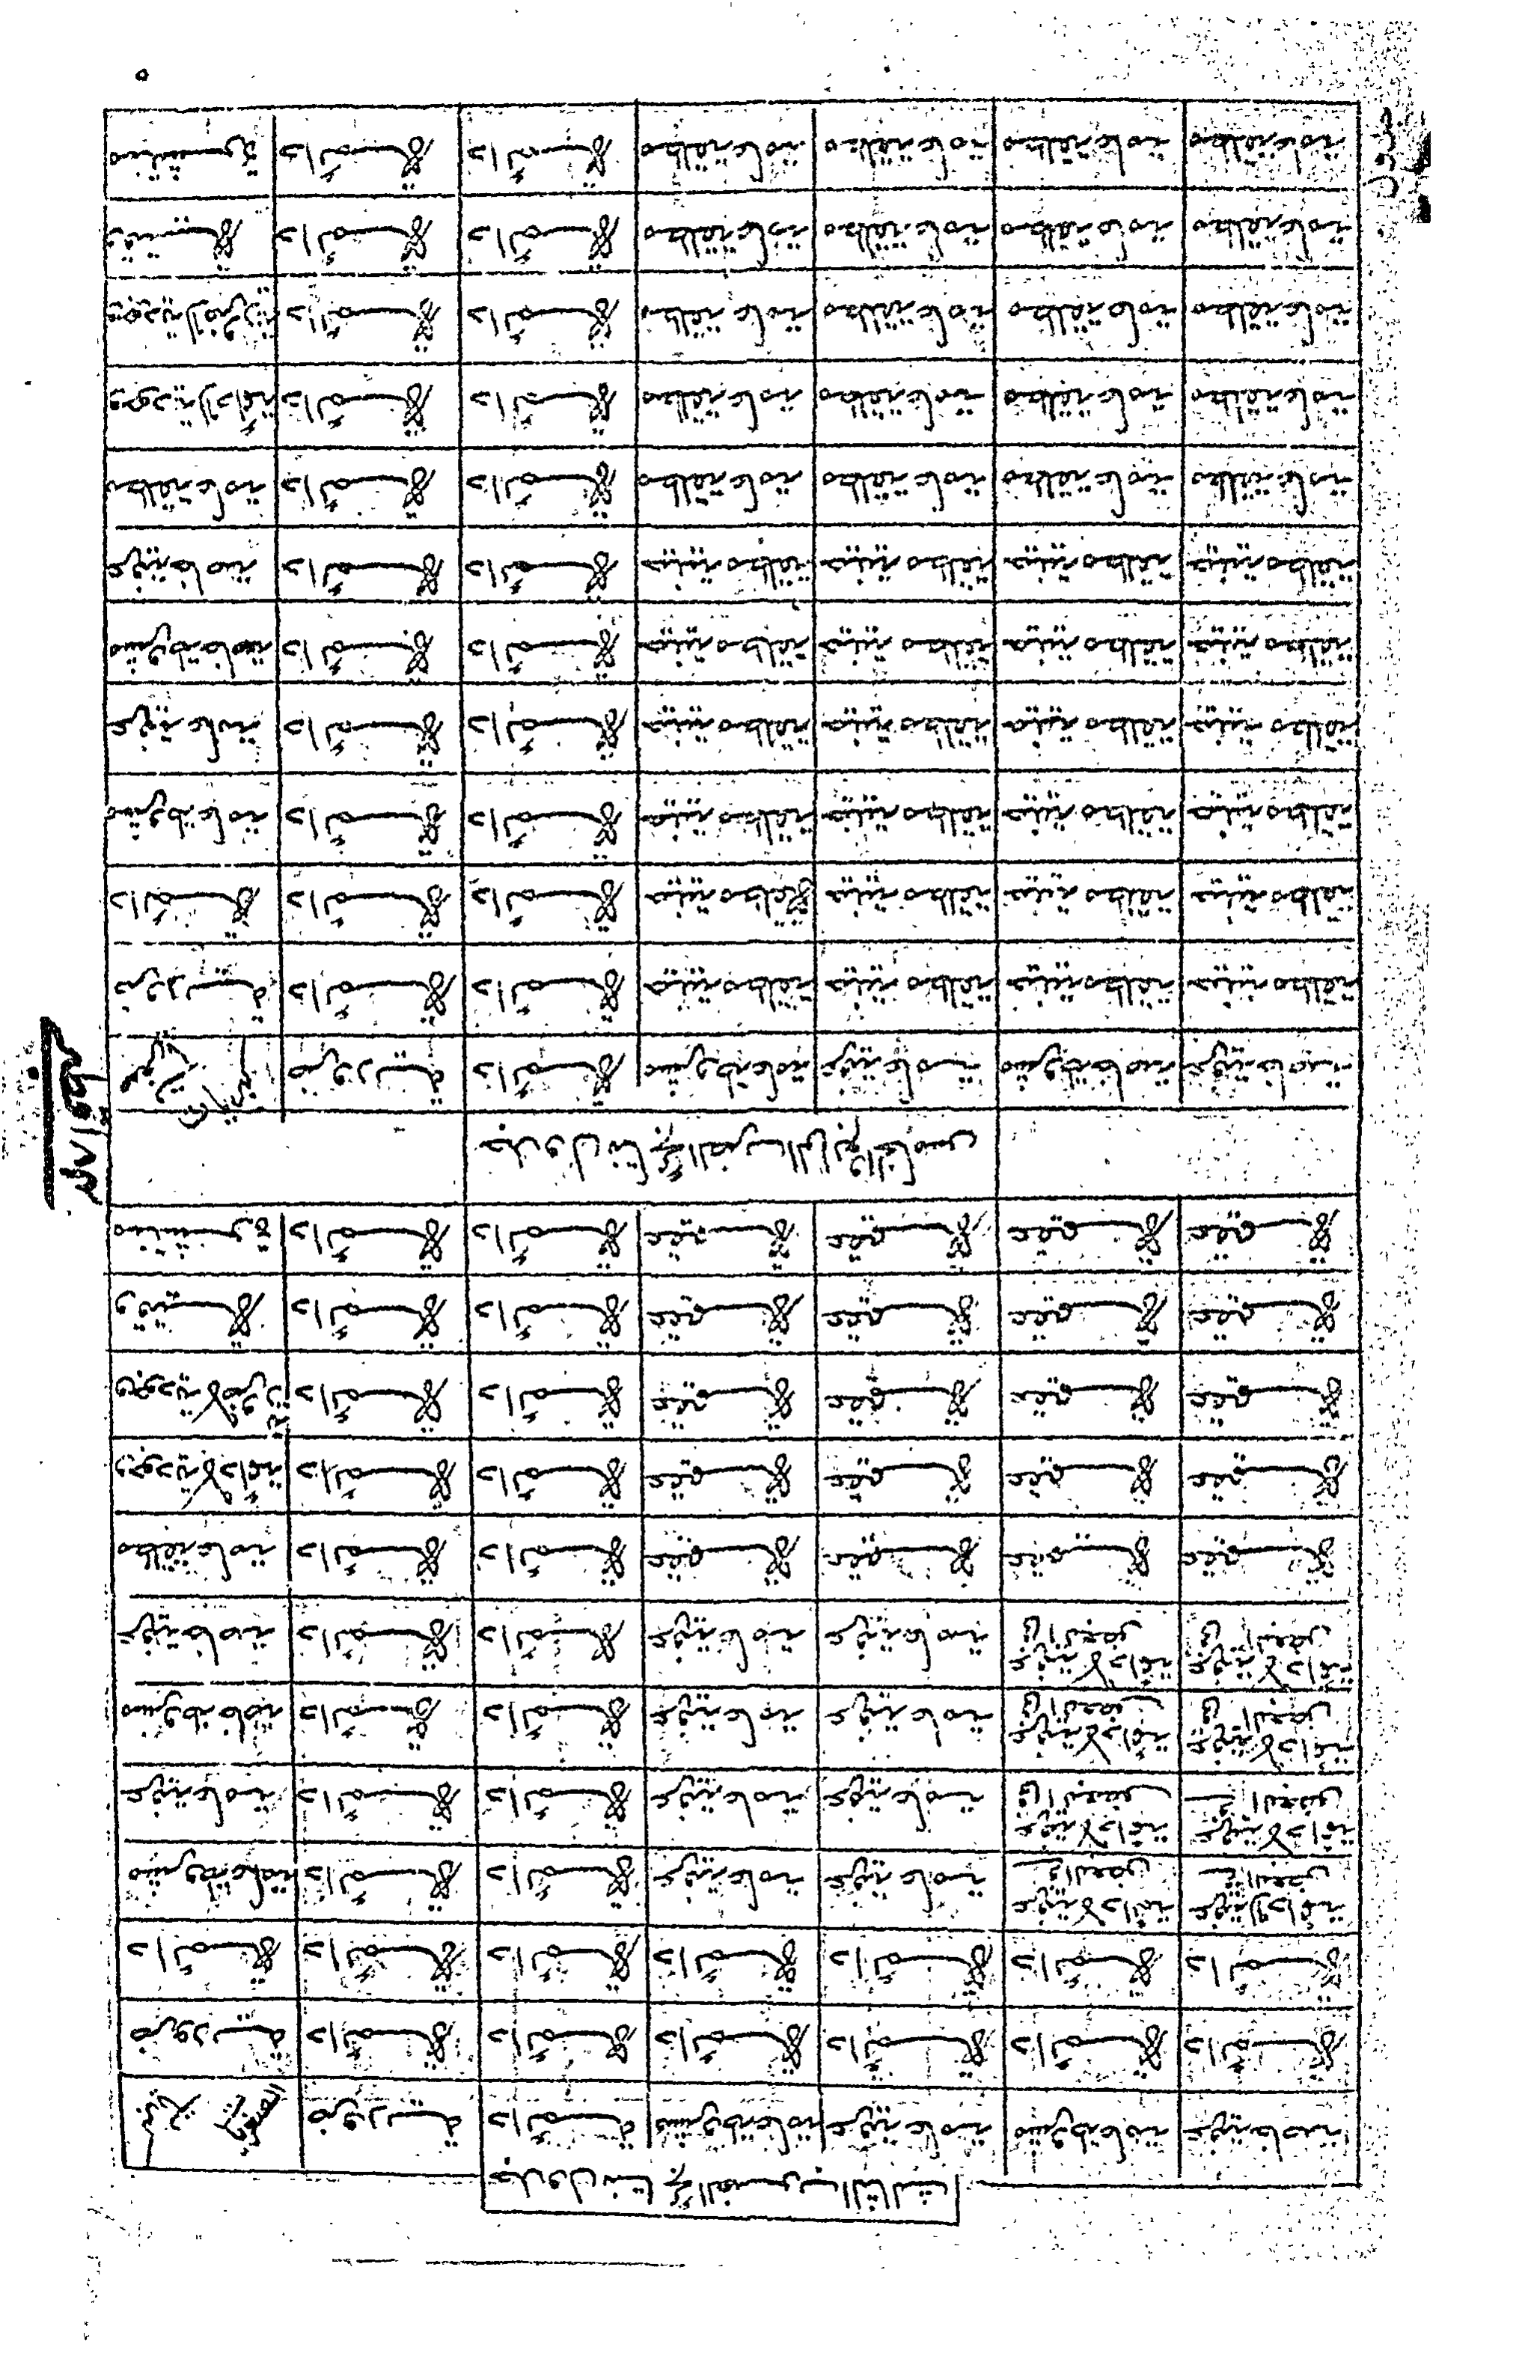 جدول نتائج الضرب الثالث
ضرورية دائمة مشروطة عامة عرفية عامة مشروطة خاصة عرفية خاصة
ضرورية دائمة دائمة دائمة دائمة دائمة دائمة
دائمة دائمة دائمة دائمة دائمة دائمة دائمة
مشروطة عامة دائمة دائمة عرفية عامة عرفية عامة عرفية لا دائمة في البعض عرفية لا دائمة في البعض
عرفية عامة دائمة دائمة عرفية عامة عرفية عامة عرفية لا دائمة في البعض عرفية لا دائمة في البعض
مشروطة خاصة دائمة دائمة عرفية عامة عرفية عامة عرفية لا دائمة في البعض عرفية لا دائمة في البعض
عرفية خاصة دائمة دائمة عرفية عامة عرفية عامة عرفية لا دائمة في البعض عرفية لا دائمة في البعض
مطلقة عامة دائمة دائمة عقيمة عقيمة عقيمة عقيمة
وجودية لا دائمة دائمة دائمة عقيمة عقيمة عقيمة عقيمة
وجودية لا ضرورية دائمة دائمة عقيمة عقيمة عقيمة عقيمة
وقتية دائمة دائمة عقيمة عقيمة عقيمة عقيمة
منتشرة دائمة دائمة عقيمة عقيمة عقيمة عقيمة
جدول نتائج الضرب الرابع والخامس
ضرورية دائمة مشروطة عامة عرفية عامة مشروطة خاصة عرفية خاصة
ضرورية دائمة دائمة حينية مطلقة حينية مطلقة حينية مطلقة حينية مطلقة
دائمة دائمة دائمة حينية مطلقة حينية مطلقة حينية مطلقة حينية مطلقة
مشروطة عامة دائمة دائمة حينية مطلقة حينية مطلقة حينية مطلقة حينية مطلقة
عرفية عامة دائمة دائمة حينية مطلقة حينية مطلقة حينية مطلقة حينية مطلقة
مشروطة خاصة دائمة دائمة حينية مطلقة حينية مطلقة حينية مطلقة حينية مطلقة
عرفية خاصة دائمة دائمة حينية مطلقة حينية مطلقة حينية مطلقة حينية مطلقة
مطلقة عامة دائمة دائمة مطلقة عامة مطلقة عامة مطلقة عامة مطلقة عامة
وجودية لا دائمة دائمة دائمة مطلقة عامة مطلقة عامة مطلقة عامة مطلقة عامة
وجودية لا ضرورية دائمة دائمة مطلقة عامة مطلقة عامة مطلقة عامة مطلقة عامة
وقتية دائمة دائمة مطلقة عامة مطلقة عامة مطلقة عامة مطلقة عامة
منتشرة دائمة دائمة مطلقة عامة مطلقة عامة مطلقة عامة مطلقة عامة